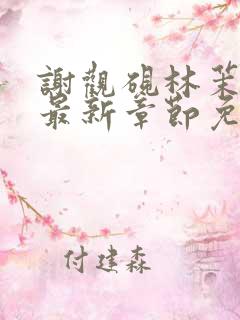 謝觀硯林笨
最新章節免
付建森